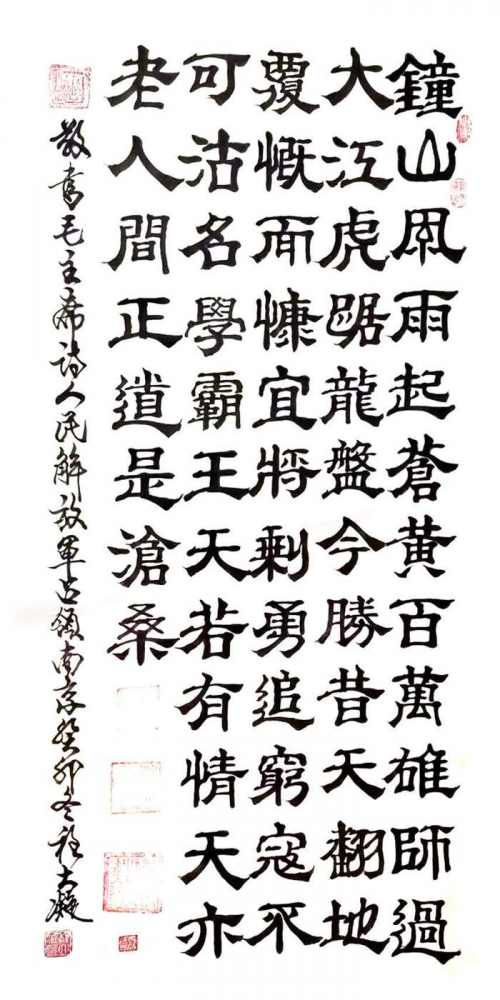 鐘山風雨起蒼黃百萬雄師過
大江虎踞龍盤今勝昔天翻地
覆慨而慷宜將剩勇追窮寇不
可沽名學霸王天若有情天亦
老人間正道是滄桑
敬書毛主席诗人民解放軍占领南京癸卯冬